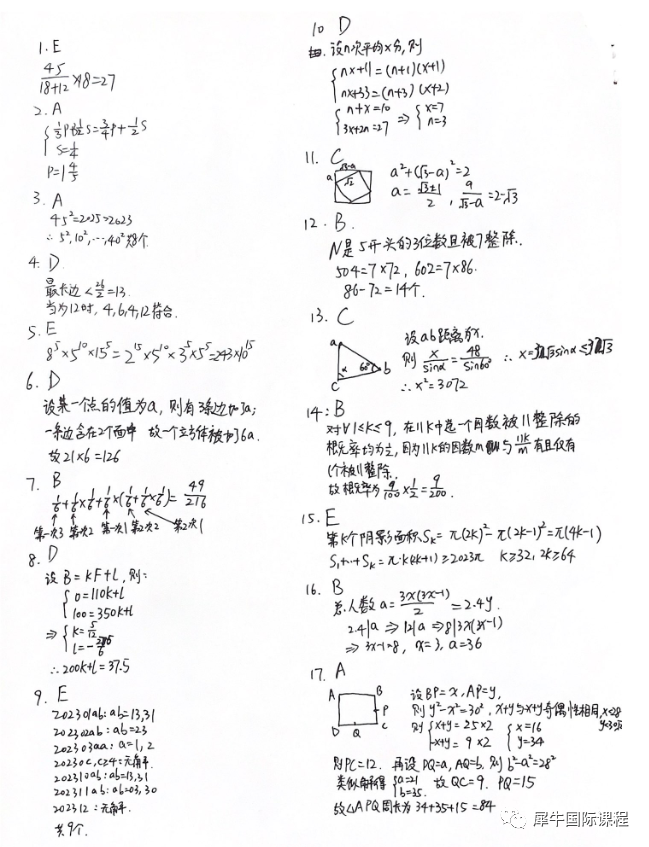 1. E
45/(18+12) ×18=27
2. A
{ 1/3P+1/2S=3/4P+1/2S
S=1/4
3. A
45²=2025>2023
∴ 5², 10², ⋯, 40² 共8个.
4. D.
最长边 < 26/2=13.
当为12时, 4,6,4,12符合.
5. E
8⁵×5¹⁰×15⁵=2¹⁵×5¹⁰×3⁵×5⁵=243×10¹⁵
6. D
设某一个点的值为a, 则有3条边加了a;
一条边含在2个面中 故一个立方体被加了6a.
故21×6=126
7. B
1/6+1/6×1/6+1/6×(1/6+1/6×1/6)=49/216
第一次3 第一次2 第一次1 第二次2 第二次1
8. D
设 B=kF+l, 则:
{ 0=110k+l
100=350k+l
⇒ { k=5/12
∴200k+l=37.5
9. E
202301ab: ab=13,31
202302ab: ab=23
202303aa: a=1, 2
20230c, c≥4: 无解.
202310ab: ab=13,31
202311ab: ab=03, 30
202312: 无解.
共9个.
10 D
设n次平均x分, 则
{ nx+11=(n+1)(x+1)
nx+33=(n+3)(x+2)
{ n+x=10
3x+2n=27 ⇒ { x=7
n=3
11. C
√3-a
a
√2
a²+(√3-a)²=2
a=(√3±1)/2, a/(√3-a)=2-√3
12. B.
N是5开头的3位数且被7整除.
504=7×72, 602=7×86.
86-72=14个.
13. C
a
α
60°
b
c
设ab距离为x.
则 x/sinα=48/sin60
∴x²=3072
14: B
对∀1≤k≤9, 在11k中选一个因数被11整除的
概率均为1/2, 因为11k的因数m 与 11k/m 有且仅有
1个被11整除.
故概率为 9/100×1/2=9/200.
15. E
第k个阴影面积Sk=π(2k)²-π(2k-1)²=π(4k-1)
S₁+⋯+Sk=π·k(2k+1)≥2023π k≥32, 2k≥64
16. B
总人数a=3x(3x-1)/2=2.4y.
⇒ 3x-1=8, x=3, a=36
17. A
A
B
P
D
Q
C
设BP=x, AP=y,
则y²-x²=30², x+y与x-y奇偶性相同,
则 { x+y=25×2
-x+y=9×2
{ x=16
y=34
则PC=12. 再设DQ=a, AQ=b, 则b²-a²=28²
类似解得 { a=21
b=35. 故QC=9. PQ=15
故△APQ周长为34+35+15=84
犀牛国际课程